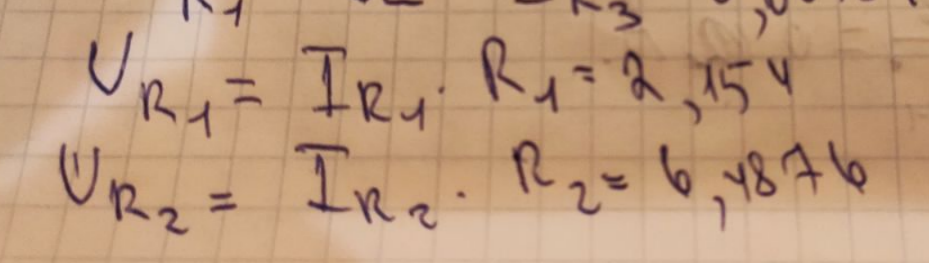 U_R1 = I_R1 · R1 = 2,154
U_R2 = I_R2 · R2 = 6,4876